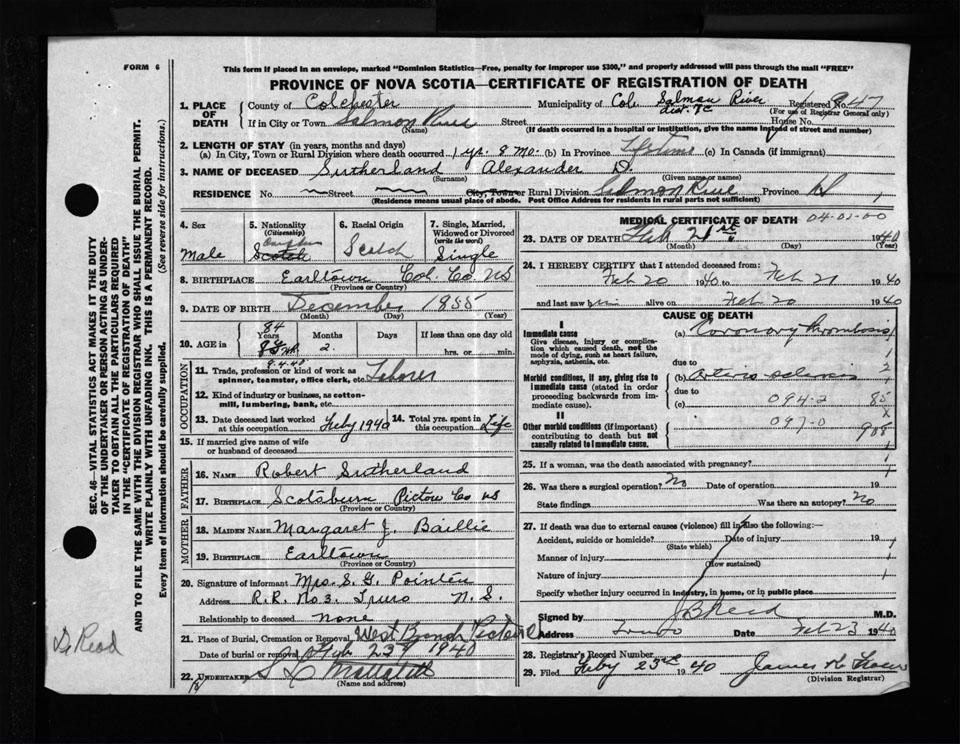 FORM 6
This form if placed in an envelope, marked "Dominion Statistics—Free, penalty for improper use $300," and properly addressed will pass through the mail "FREE"
PROVINCE OF NOVA SCOTIA—CERTIFICATE OF REGISTRATION OF DEATH
1. PLACE OF DEATH
County of Colchester Municipality of Col. Salmon River Registered No. 947
dist. 7c (For use of Registrar General only)
If in City or Town Salmon River Street House No.
(Name) (If death occurred in a hospital or institution, give the name instead of street and number)
2. LENGTH OF STAY (in years, months and days)
(a) In City, Town or Rural Division where death occurred 1 yr. 8 mo. (b) In Province Lifetime (c) In Canada (if immigrant)
3. NAME OF DECEASED Sutherland Alexander D.
(Surname) (Given name or names)
RESIDENCE No. Street City, Town or Rural Division Salmon River Province
(Residence means usual place of abode. Post Office Address for residents in rural parts not sufficient)
4. Sex
Male
5. Nationality
(Citizenship)
Scotch
6. Racial Origin
Scotch
7. Single, Married, Widowed or Divorced
(write the word)
Single
8. BIRTHPLACE Earltown Col. Co. NS
(Province or Country)
9. DATE OF BIRTH December 1855
(Month) (Day) (Year)
10. AGE in
84
Years Months Days If less than one day old
2. hrs. or min.
9-4-40
OCCUPATION
11. Trade, profession or kind of work as spinner, teamster, office clerk, etc. Laborer
12. Kind of industry or business, as cotton-mill, lumbering, bank, etc.
13. Date deceased last worked at this occupation Feby 1940
14. Total yrs. spent in this occupation Life
15. If married give name of wife or husband of deceased
FATHER
16. NAME Robert Sutherland
17. BIRTHPLACE Scotsburn Pictou Co NS
(Province or Country)
MOTHER
18. MAIDEN NAME Margaret J. Baillie
19. BIRTHPLACE Earltown
(Province or Country)
20. Signature of informant Mrs. S. G. Pointen
Address R.R. No 3. Truro N.S.
Relationship to deceased none
21. Place of Burial, Cremation or Removal West Branch
Date of burial or removal Feb 23 1940
22. UNDERTAKER
(Name and address)
MEDICAL CERTIFICATE OF DEATH 04-01-00
23. DATE OF DEATH Feb 21st 1940
(Month) (Day) (Year)
24. I HEREBY CERTIFY that I attended deceased from:
Feb 20 1940 to Feb 21 1940
and last saw him alive on Feb 20 1940
CAUSE OF DEATH
I
Immediate cause (a) Coronary thrombosis
Give disease, injury or complication which caused death, not the mode of dying, such as heart failure, asphyxia, asthenia, etc.
due to
Morbid conditions, if any, giving rise to immediate cause (stated in order proceeding backwards from immediate cause).
(b) Arterio sclerosis
due to
(c) 094-2
II
Other morbid conditions (if important) contributing to death but not causally related to immediate cause.
097-0
25. If a woman, was the death associated with pregnancy?
26. Was there a surgical operation? No Date of operation 19
State findings Was there an autopsy? No
27. If death was due to external causes (violence) fill in also the following:—
Accident, suicide or homicide? Date of injury 19
(State which)
Manner of injury
(How sustained)
Nature of injury
Specify whether injury occurred in industry, in home, or in public place
Signed by M.D.
Address Truro Date Feb 23 1940
28. Registrar's Record Number
29. Filed Feby 23rd 1940 James
(Division Registrar)
SEC. 46—VITAL STATISTICS ACT MAKES IT THE DUTY
OF THE UNDERTAKER OR PERSON ACTING AS UNDERTAKER
TO OBTAIN ALL THE PARTICULARS REQUIRED
IN THE "CERTIFICATE OF REGISTRATION OF DEATH"
AND TO FILE THE SAME WITH THE DIVISION REGISTRAR WHO SHALL ISSUE THE BURIAL PERMIT.
WRITE PLAINLY WITH UNFADING INK. THIS IS A PERMANENT RECORD.
Every item of information should be carefully supplied. (See reverse side for instructions.)